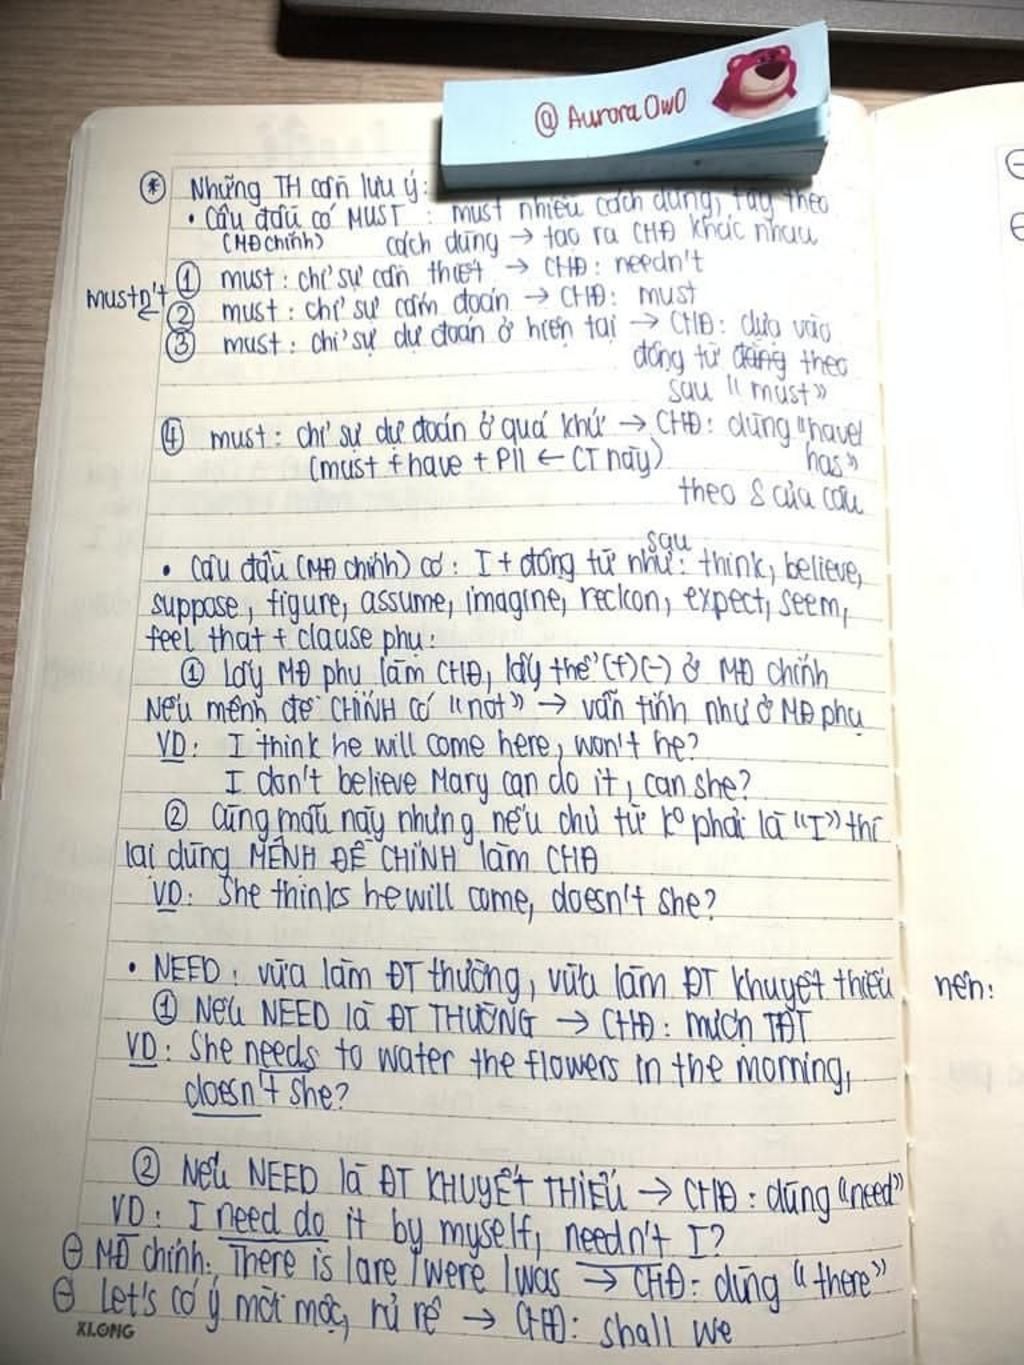 @AuroraOwO
* Những TH cần lưu ý:
• Câu đầu có MUST : must nhiều cách dùng, tùy theo
(MĐ chính) cách dùng → tạo ra CHĐ khác nhau
① must : chỉ sự cần thiết → CHĐ: needn't
mustn't ② must : chỉ sự cấm đoán → CHĐ: must
③ must : chỉ sự dự đoán ở hiện tại → CHĐ: dựa vào
động từ đăng theo
sau "must"
④ must : chỉ sự dự đoán ở quá khứ → CHĐ: dùng "have/
(must + have + PII ← CT này) has"
theo S của câu
sau
• Câu đầu (MĐ chính) có : I + động từ như : think, believe,
suppose, figure, assume, imagine, reckon, expect, seem,
feel that + clause phụ :
① lấy MĐ phụ làm CHĐ, lấy thể (+) (-) ở MĐ chính
Nếu mệnh đề CHÍNH có "not" → vẫn tính như ở MĐ phụ
VD: I think he will come here, won't he?
I don't believe Mary can do it, can she?
② Cũng mẫu này nhưng nếu chủ từ ko phải là "I" thì
lại dùng MỆNH ĐỀ CHÍNH làm CHĐ
VD: She thinks he will come, doesn't she?
• NEED : vừa làm ĐT thường, vừa làm ĐT khuyết thiếu nên:
① Nếu NEED là ĐT THƯỜNG → CHĐ : mượn TĐT
VD: She needs to water the flowers in the morning,
doesn't she?
② Nếu NEED là ĐT KHUYẾT THIẾU → CHĐ : dùng "need"
VD: I need do it by myself, needn't I?
⊖ MĐ chính: There is /are /were /was → CHĐ: dùng "there"
⊖ Let's có ý mời mọc, rủ rê → CHĐ: shall we
XLONG